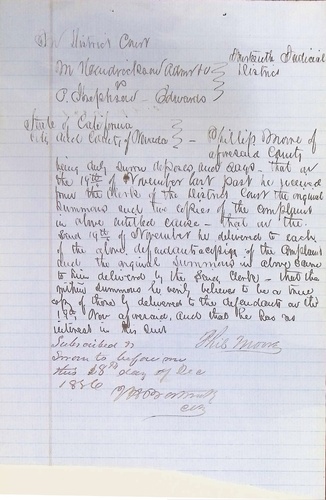 In District Court
Fourteenth Judicial
District
M Hendrickson Admr
vs
P. Stephson - Edwards
State of California
City and County of Nevada - Phillip Moore of
aforesaid County
being duly sworn deposes and says - that on
the 19th of November last past he received
from the Clerk of the District Court the original
Summons and two copies of the complaint
in above entitled cause - that on the
said 19th of November he delivered to each
of the above defendants a copy of the complaint
and the original summons in above cause
to him delivered by the said Clerk - that the
within summons he verily believe to be a true
copy of those by delivered to the defendants on the
19th Nov aforesaid, and that he has no
interest in this suit
Subscribed &
Phil Moore
Sworn to before me
this 28th day of Dec
1856
Clk